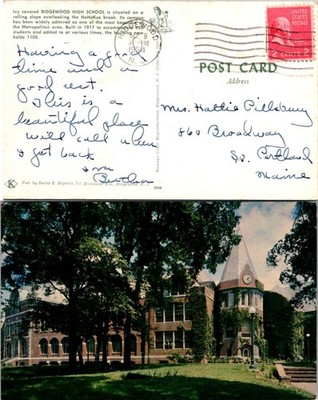 Ivy covered RIDGEWOOD HIGH SCHOOL is situated on a
rolling slope overlooking the HoHoKus brook. Its campus
has been widely admired as one of the most beautiful in
the Metropolitan area. Built in 1917 to accommodate
students and added to at various times, the building now
holds 1100.
Having a
time and a
good rest.
This is a
beautiful place
will call when
I get back
POST CARD
Address
Mrs. Hattie Pillsbury
860 Broadway
So. Portland
Maine
2 CENTS 2
K
Pub. by David E.